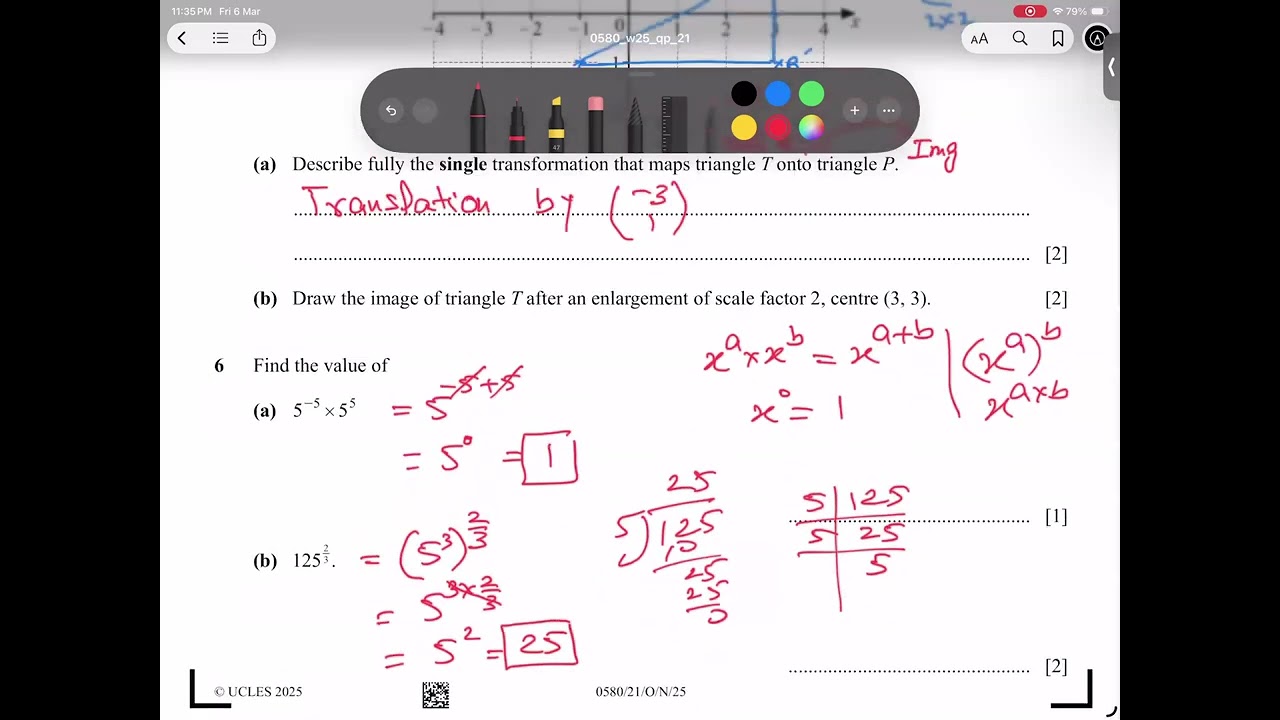 11:35 PM Fri 6 Mar
79%
0580_w25_qp_21
AA
-4 -3 -2 -1 0 2 3 4 x
2×2
×B'
47
(a) Describe fully the single transformation that maps triangle T onto triangle P. Img
Translation by (-3 1)
[2]
(b) Draw the image of triangle T after an enlargement of scale factor 2, centre (3, 3). [2]
x^a × x^b = x^{a+b} | (x^a)^b
x^0 = 1
x^{a×b}
6 Find the value of
(a) 5^{-5} × 5^5 = 5^{-5+5}
= 5^0 = 1
[1]
25
5)125
10
25
25
0
5 | 125
5 | 25
5
(b) 125^{2/3}. = (5^3)^{2/3}
= 5^{3×2/3}
= 5^2 = 25
[2]
© UCLES 2025
0580/21/O/N/25